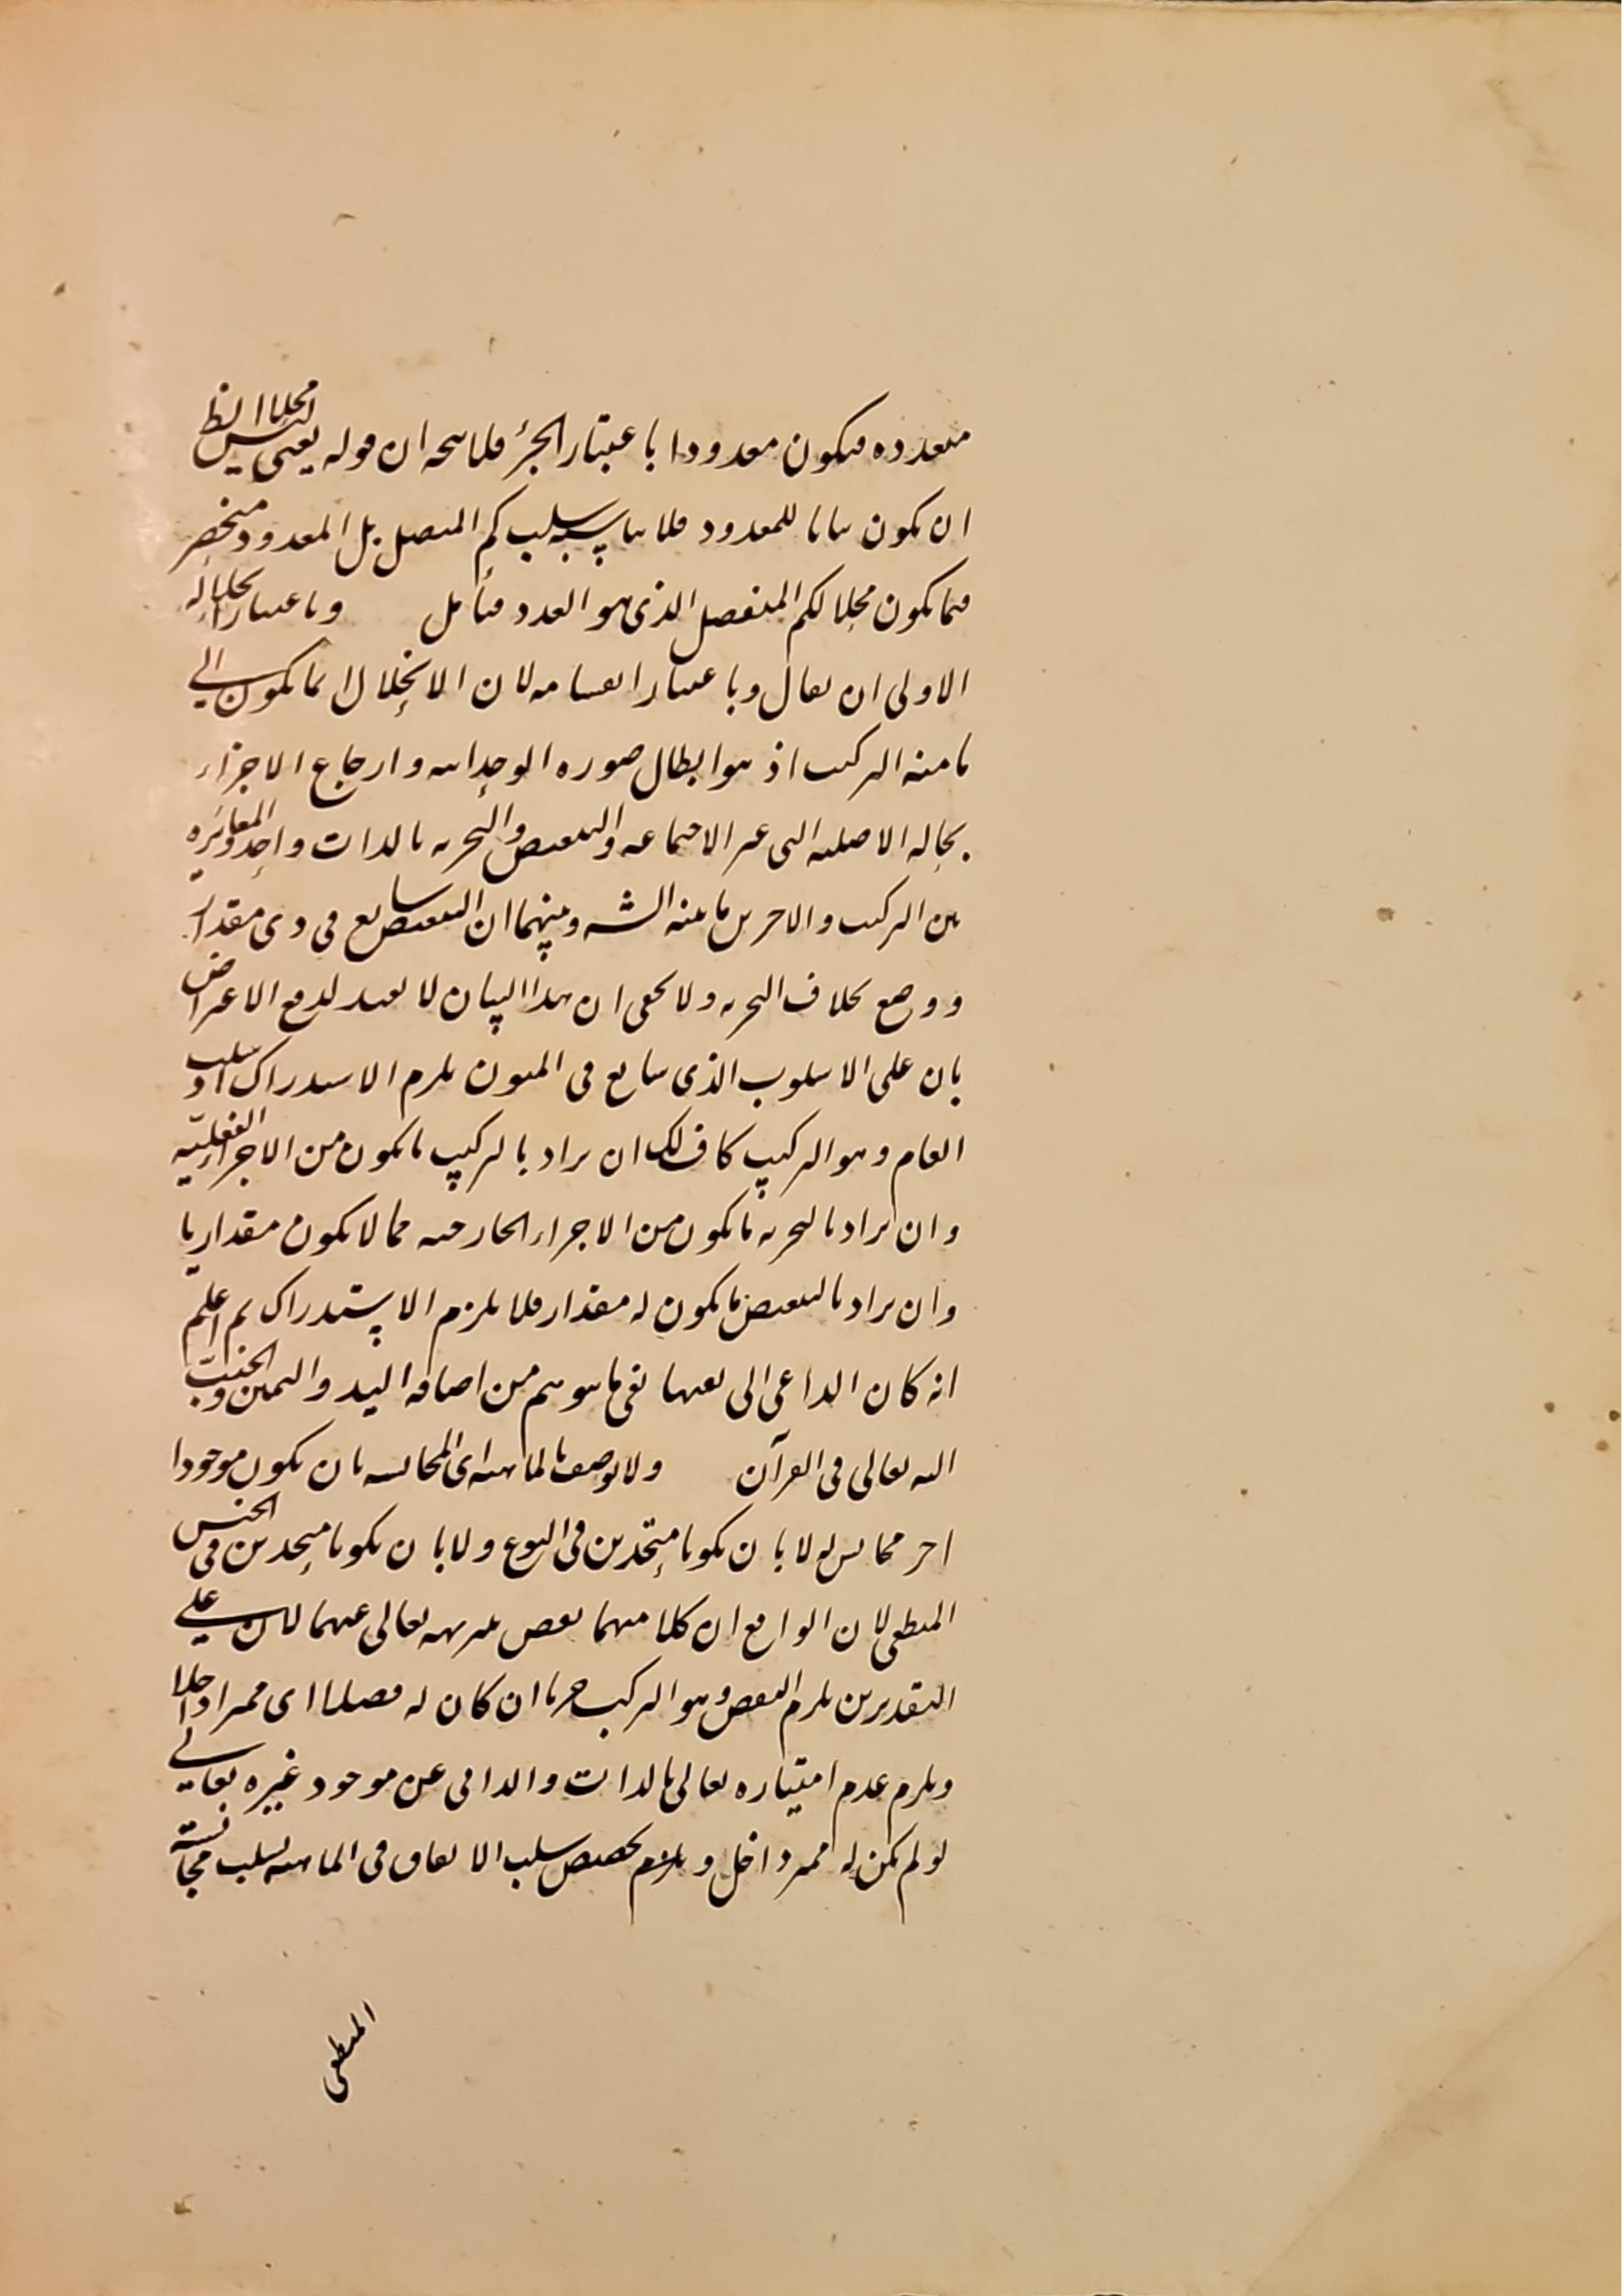 متعدده فيكون معدودا باعتبار الجزء فلا يتجه ان قوله يعنى ليس محلا الظ
ان يكون بيانا للمعدود فلا يناسبه سلب كم المتصل بل المعدود منحصر
فيما يكون محلا لكم المنفصل الذى هو العدد فتأمل وباعتبار انحلاله اليها
الاولى ان يقال وباعتبار انقسامه لان الانحلال انما يكون الى
ما منه التركيب اذ هو ابطال صوره الوحدانيه وارجاع الاجزاء
بحاله الاصليه التى غير الاجتماعيه والتبعيض والتجزيه بالذات واحد والمغايره
بين التركيب والاخرين ما بينه الشه وبينهما ان التبعيض شايع فى ذى مقدار
ووضع بخلاف التجزيه ولا يخفى ان هذا البيان لا يفيد لدفع الاعتراض
بان على الاسلوب الذى شايع فى المتون يلزم الاستدراك اذ سلب
العام وهو التركيب كاف لك ان يراد بالتركيب ما يكون من الاجزاء العقليه
وان يراد بالتجزيه ما يكون من الاجزاء الخارجيه مما لا يكون مقداريا
وان يراد بالتبعيض ما يكون له مقدار فلا يلزم الاستدراك ثم اعلم
انه كان الداعى الى نفيها نفى ما يتوهم من اضافه اليد واليمين والجنب
اليه تعالى فى القرآن ولا يوصف بالماهيه اى المجانسه بان يكون موجودا
اخر مجانس له لا بان يكونا متحدين فى النوع ولا بان يكونا متحدين فى الجنس
المنطقى لان الواقع ان كلا منهما نقص تنزيهه تعالى عنهما لان على
التقديرين يلزم النقص وهو التركيب جزما ان كان له فصلا اى مميزا داخلا
ويلزم عدم امتيازه تعالى بالذات والذاتى عن موجود غيره تعالى
لو لم يكن له مميز داخل ويلزم تخصيص سلب الاتفاق فى الماهيه بسلب مجانسته
المنطقى